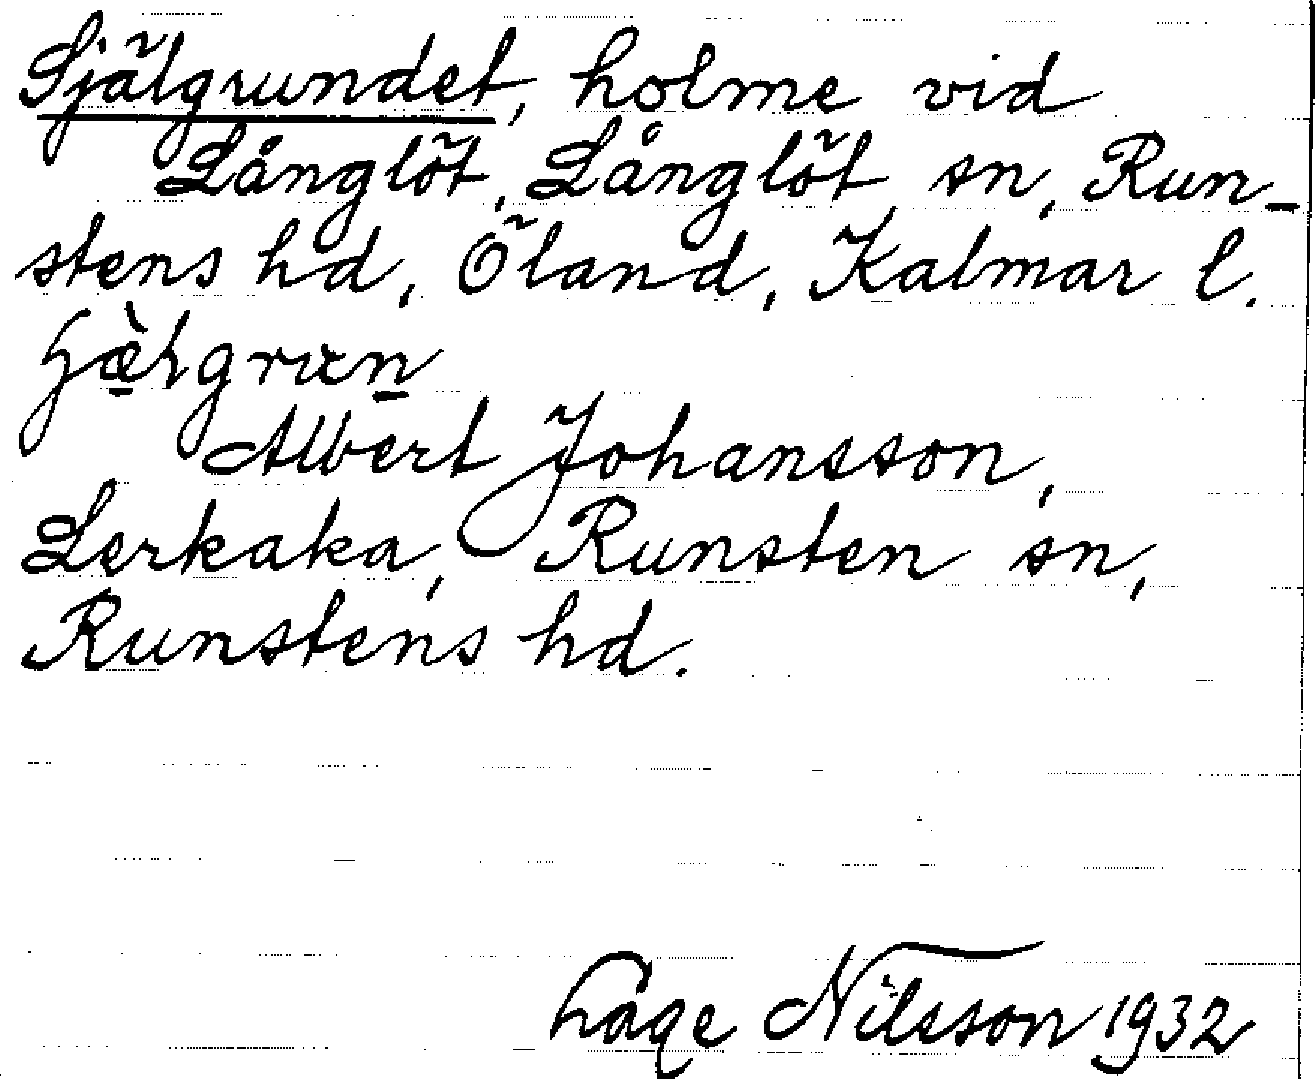 Själgrundet, holme vid
Långlöt, Långlöt sn, Run-
stens hd, Öland, Kalmar l.
Albert Johansson,
Lerkaka, Runsten sn,
Runstens hd.
Nilsson 1932